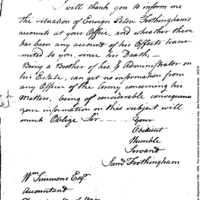 I will thank you to inform me
the situation of Ensign Peter Frothingham's
accounts at your Office, and whether there
has been any account of his Effects trans-
mitted to you, since his Death,
Being a Brother of his & Administrator on
his Estate, can get no information from
any Officer of the Army concerning his
Matters, being of considerable consequence
your information on this subject will
much Oblige Sir Your
Obedient
Humble
Servant
Saml Frothingham
Wm Simmons Esqr
Accountant